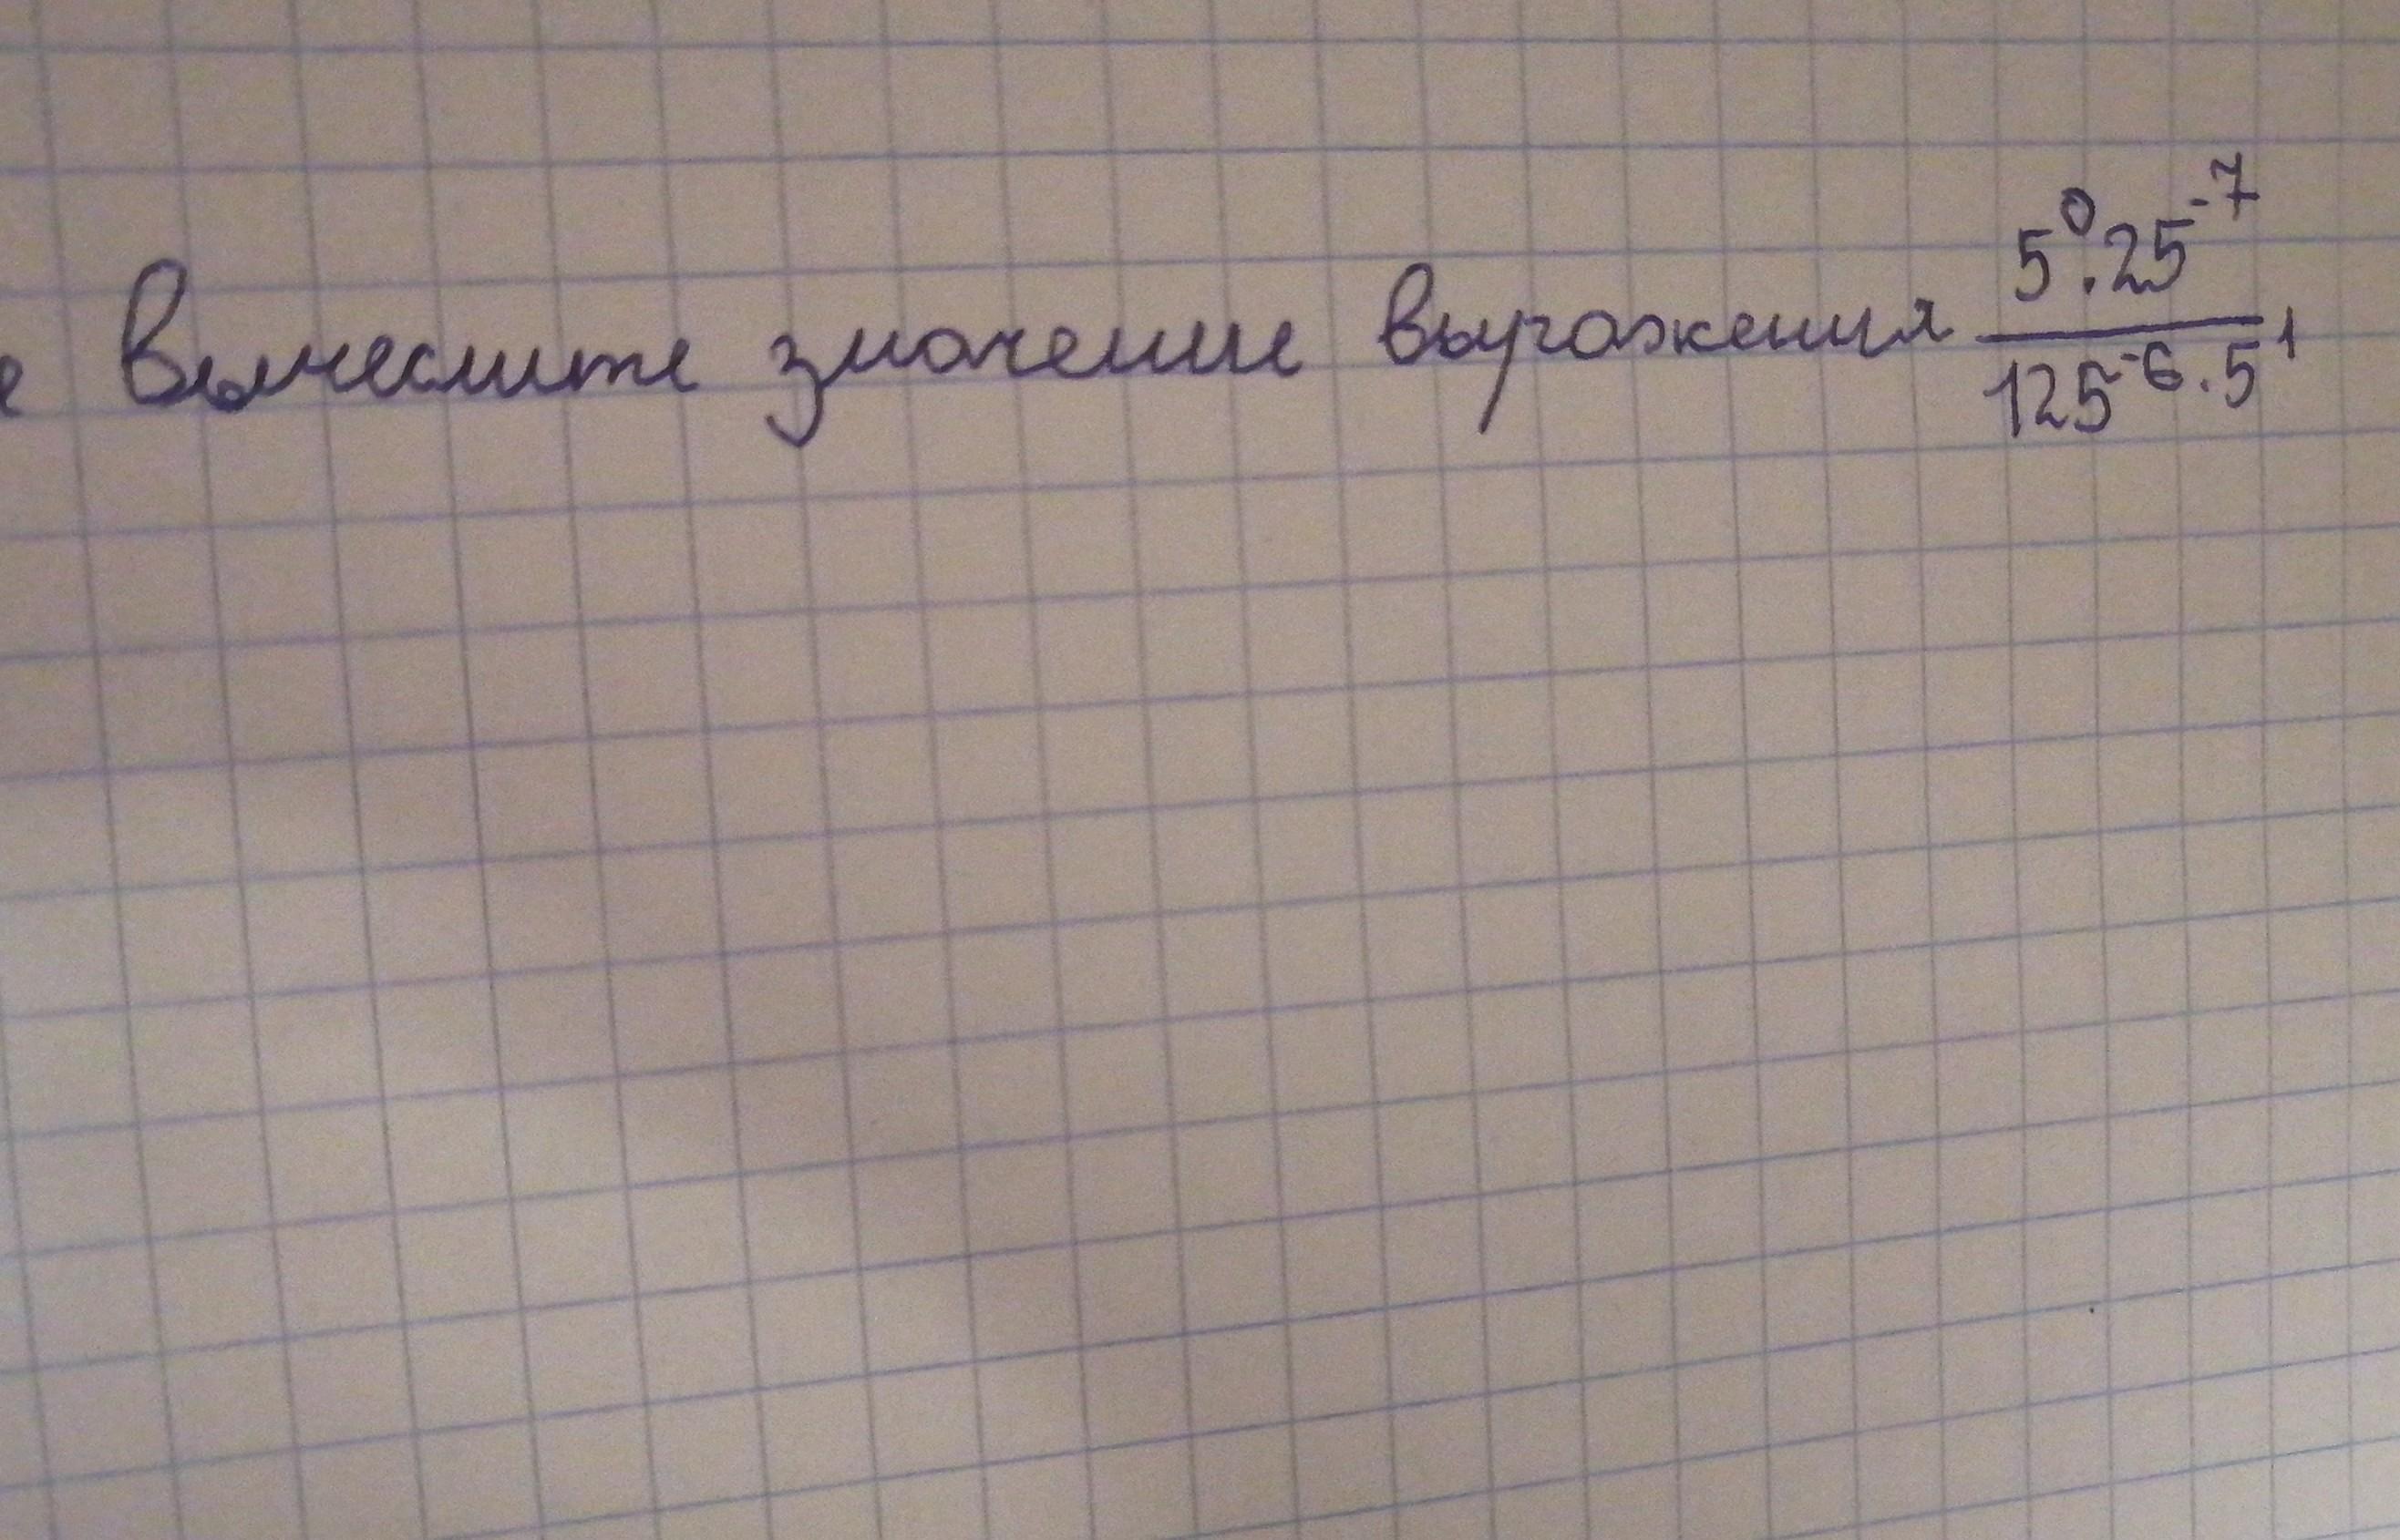 е Вычеслите значение выражения \frac{5^0 \cdot 25^{-7}}{125^{-6} \cdot 5^1}